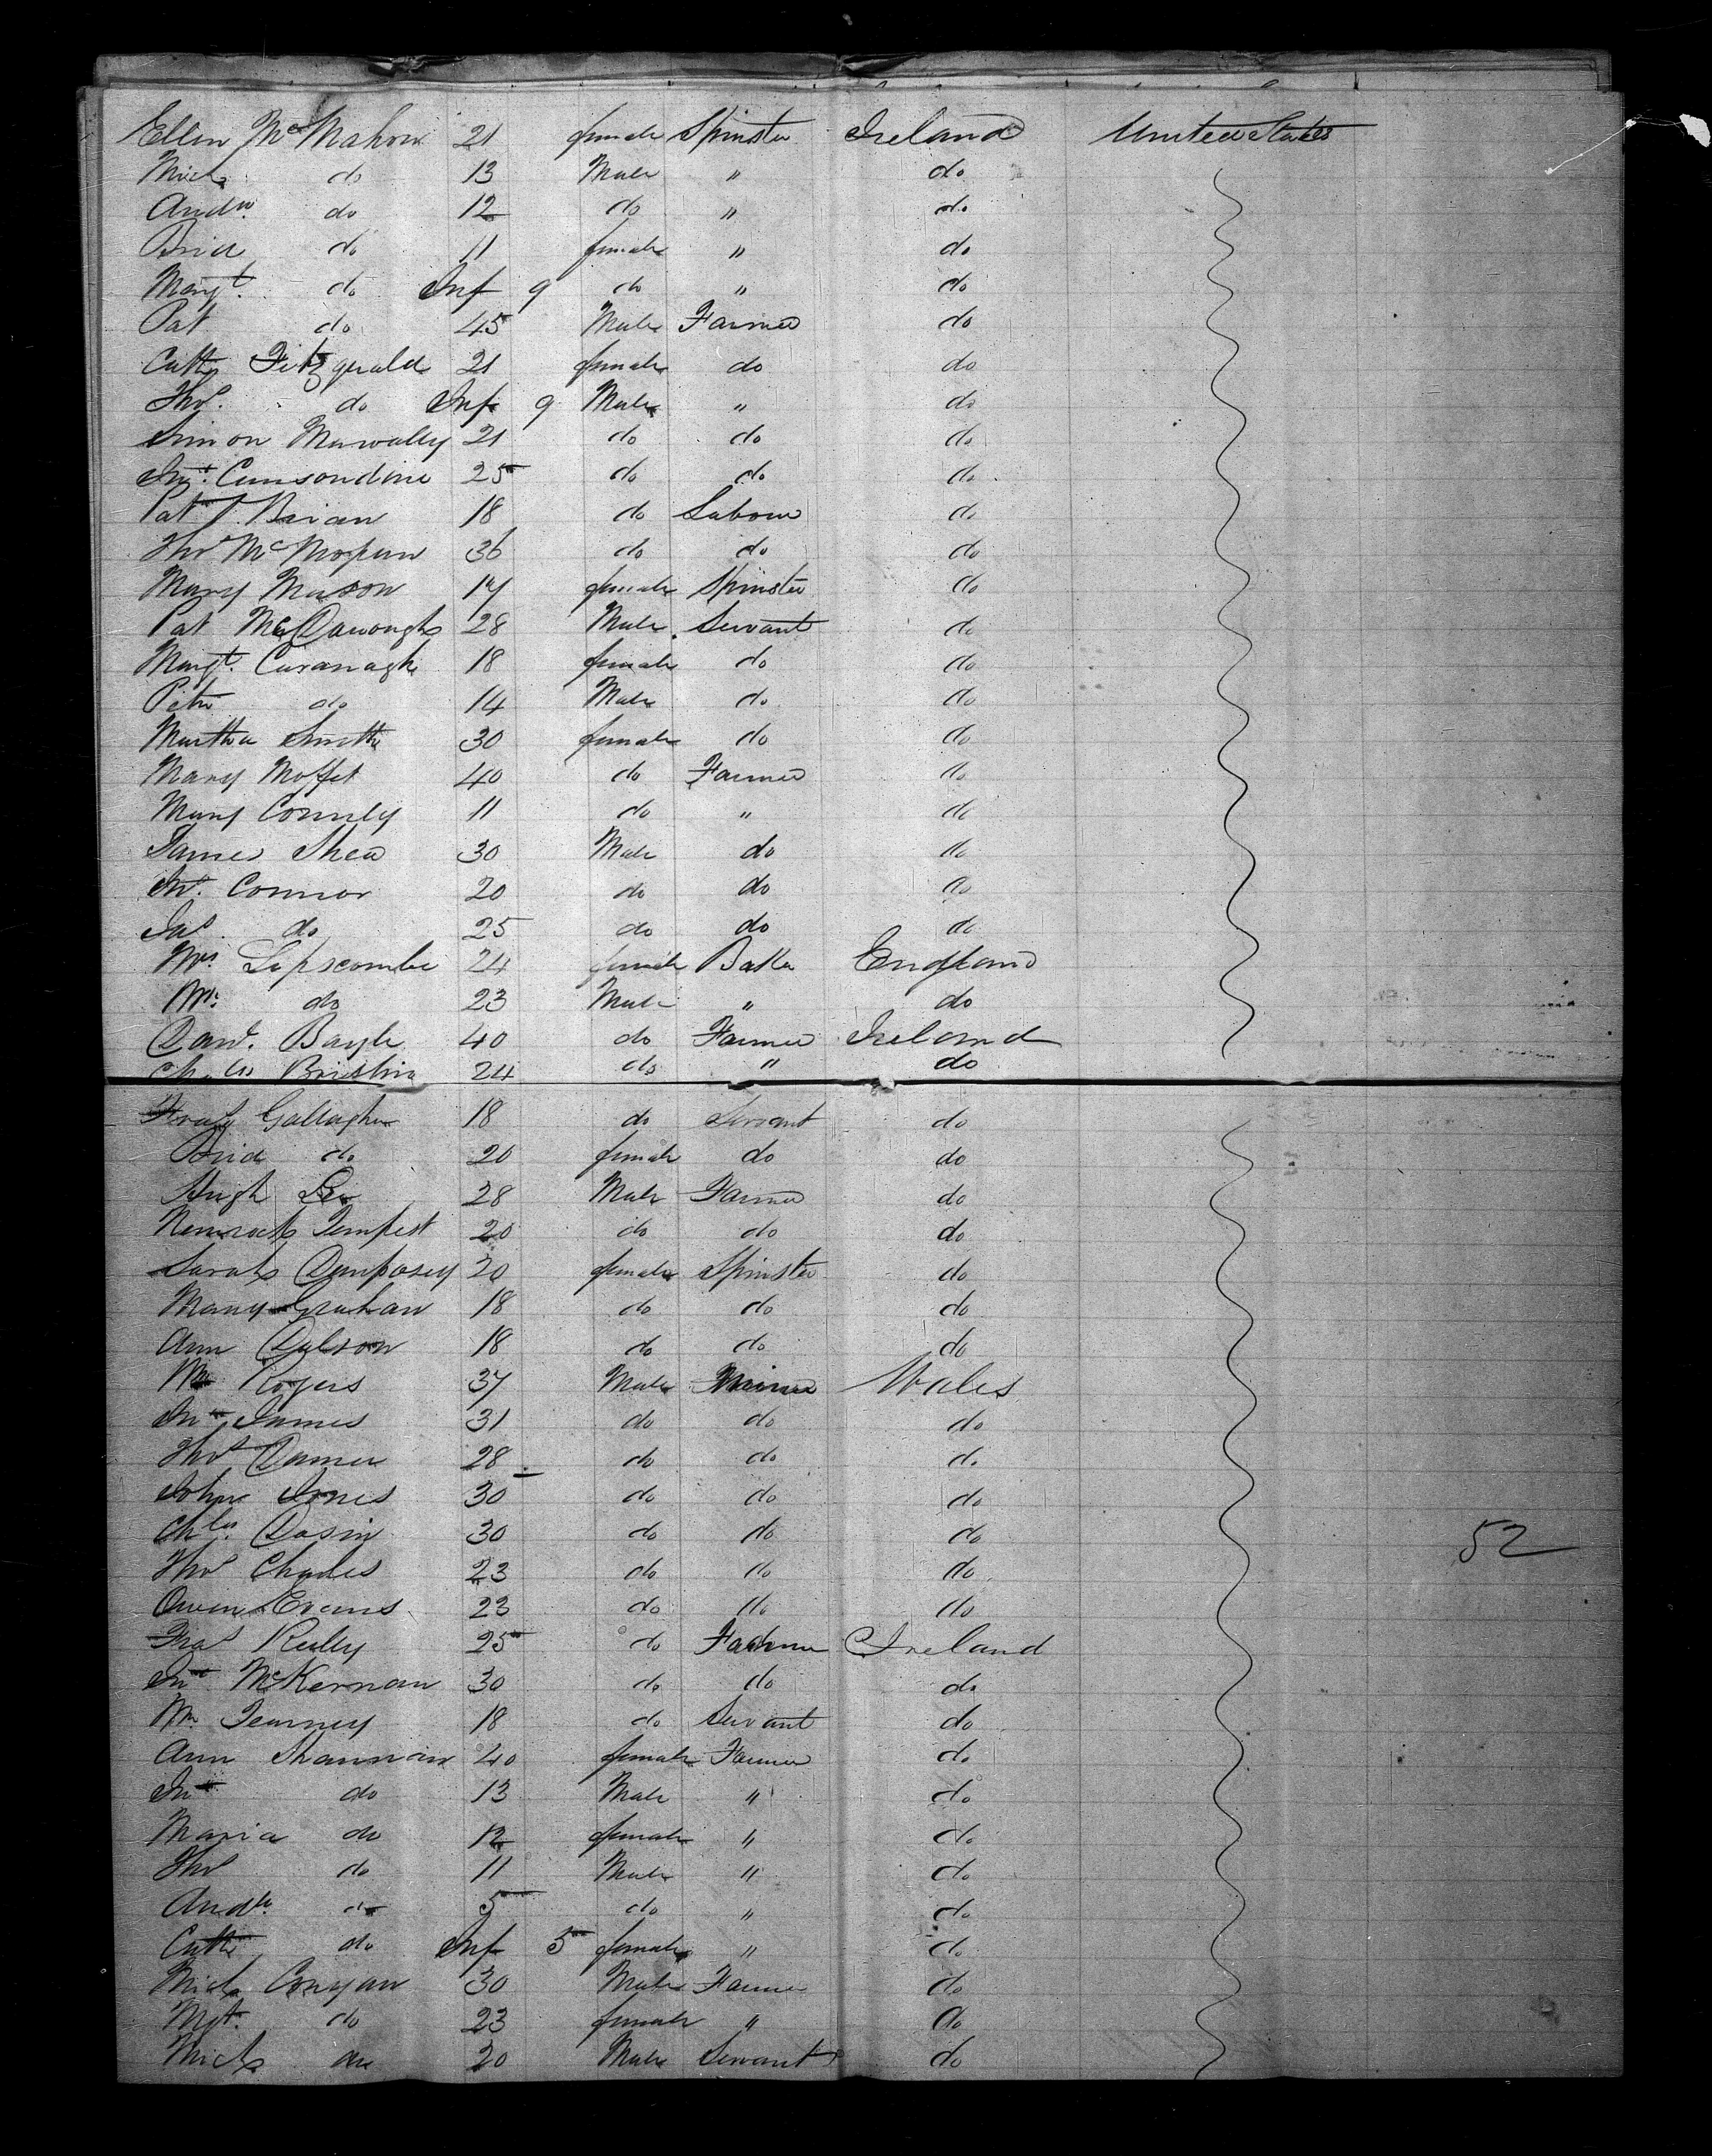 Ellen McMahon 21 female Spinster Ireland United States
Mich do 13 Male " do
Andw. do 12 do " do
Brid do 11 female " do
Margt. do Inf 9 do " do
Pat do 45 Male Farmer do
Cath Fitzgerald 21 female do do
Thos. do Inf 9 Male " do
Simon 21 do do do
Jno. Cunsondine 25 do do do
Pat Brian 18 do Labour do
Thos 36 do do do
Mary Mason 17 female Spinster do
Pat McDawough 28 Male Servant do
Margt. Cavanagh 18 female do do
Peter do 14 Male do do
Martha Smith 30 female do do
Mary Moffet 40 do Farmer do
Mary Connely 11 do " do
James Shea 30 Male do do
Jno. Connor 20 do do do
Jas. do 25 do do do
Mrs Lipscombe 24 female Baker England
Mr. do 23 Male " do
Davd. Bayle 40 do Farmer Ireland
Chales Brislin 24 do " do
Gallagher 18 do Servant do
Brid do 20 female do do
Hugh 28 Male Farmer do
Tempest 20 do do do
Sarah Demposey 20 female Spinster do
Mary Grahan 18 do do do
Ann Dalson 18 do do do
Rogers 37 Male Miner Wales
Jno James 31 do do do
Thos Damer 28 do do do
John Jones 30 do do do
Chles. Dasin 30 do do do 52
Thos Charles 23 do do do
Owen Evans 23 do do do
Fras Reilly 25 do Farmer Ireland
Jno McKernan 30 do do do
Wm Tearney 18 do Servant do
Ann Shannan 40 female Farmer do
Jno do 13 Male " do
Maria do 12 female " do
Thos do 11 Male " do
Andw. do 5 do " do
Cath do Inf 5 female " do
Mich Conyan 30 Male Farmer do
Mgt. do 23 female " do
Mich do 20 Male Servant do